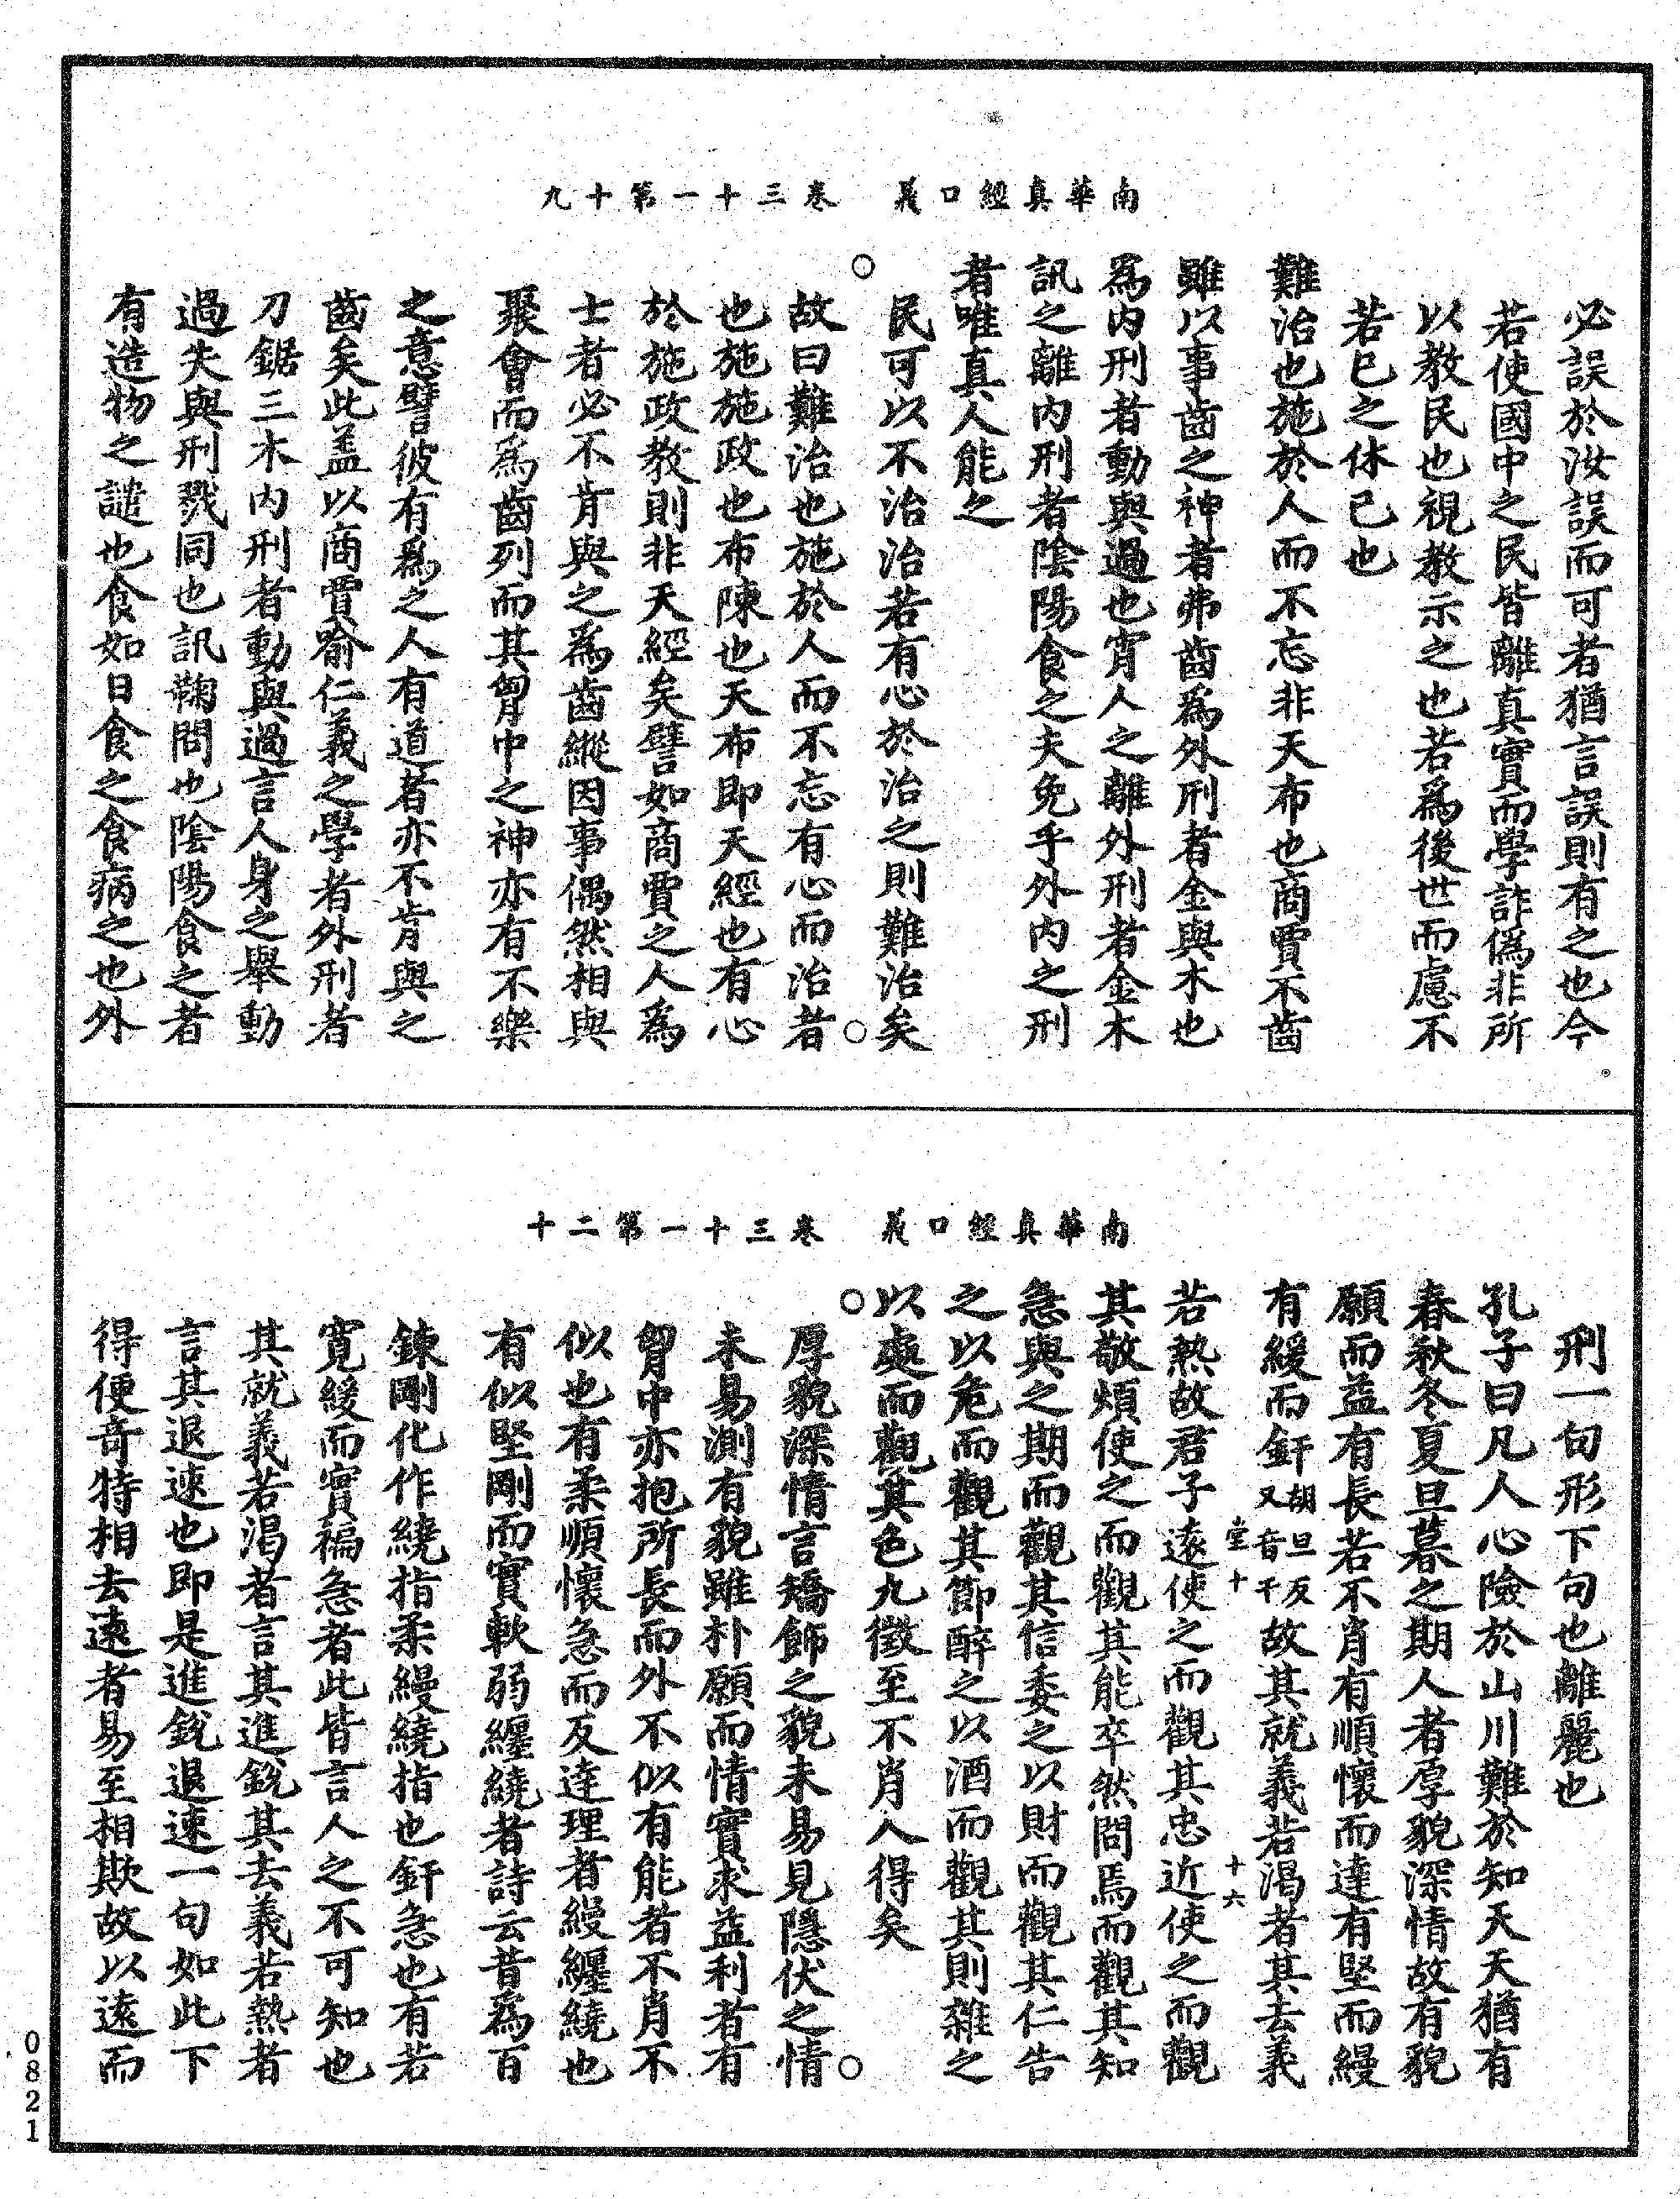 南華真經口義　卷三十一第十九
必誤於汝誤而可者猶言誤則有之也今
若使國中之民皆離真實而學詐偽非所
以教民也視教示之也若為後世而慮不
若已之休已也
難治也施於人而不忘非天布也商賈不齒
雖以事齒之神者弗齒為外刑者金與木也
為內刑者動與過也宵人之離外刑者金木
訊之離內刑者陰陽食之夫免乎外內之刑
者唯真人能之
民可以不治治若有心於治之則難治矣
○故曰難治也施於人而不忘有心而治者○
也施施政也布陳也天布即天經也有心
於施政教則非天經矣譬如商賈之人為
士者必不肯與之為齒縱因事偶然相與
聚會而為齒列而其胷中之神亦有不樂
之意譬彼有為之人有道者亦不肯與之
齒矣此蓋以商賈喻仁義之學者外刑者
刀鋸三木內刑者動與過言人身之舉動
過失與刑戮同也訊鞫問也陰陽食之者
有造物之譴也食如日食之食病之也外
南華真經口義　卷三十一第二十
刑一句形下句也離麗也
孔子曰凡人心險於山川難於知天天猶有
春秋冬夏旦暮之期人者厚貌深情故有貌
願而益有長若不肖有順懷而達有堅而縵
有緩而釬胡旦反又音干故其就義若渴者其去義
堂十　十六
若熱故君子遠使之而觀其忠近使之而觀
其敬煩使之而觀其能卒然問焉而觀其知
急與之期而觀其信委之以財而觀其仁告
之以危而觀其節醉之以酒而觀其則雜之
以處而觀其色九徵至不肖人得矣
○厚貌深情言矯飾之貌未易見隱伏之情○
未易測有貌雖朴願而情實求益利者有
胷中亦抱所長而外不似有能者不肖不
似也有柔順懷急而反達理者縵纏繞也
有似堅剛而實軟弱纏繞者詩云昔為百
鍊剛化作繞指柔縵繞指也釬急也有若
寬緩而實褊急者此皆言人之不可知也
其就義若渴者言其進銳其去義若熱者
言其退速也即是進銳退速一句如此下
得便奇特相去遠者易至相欺故以遠而
0821